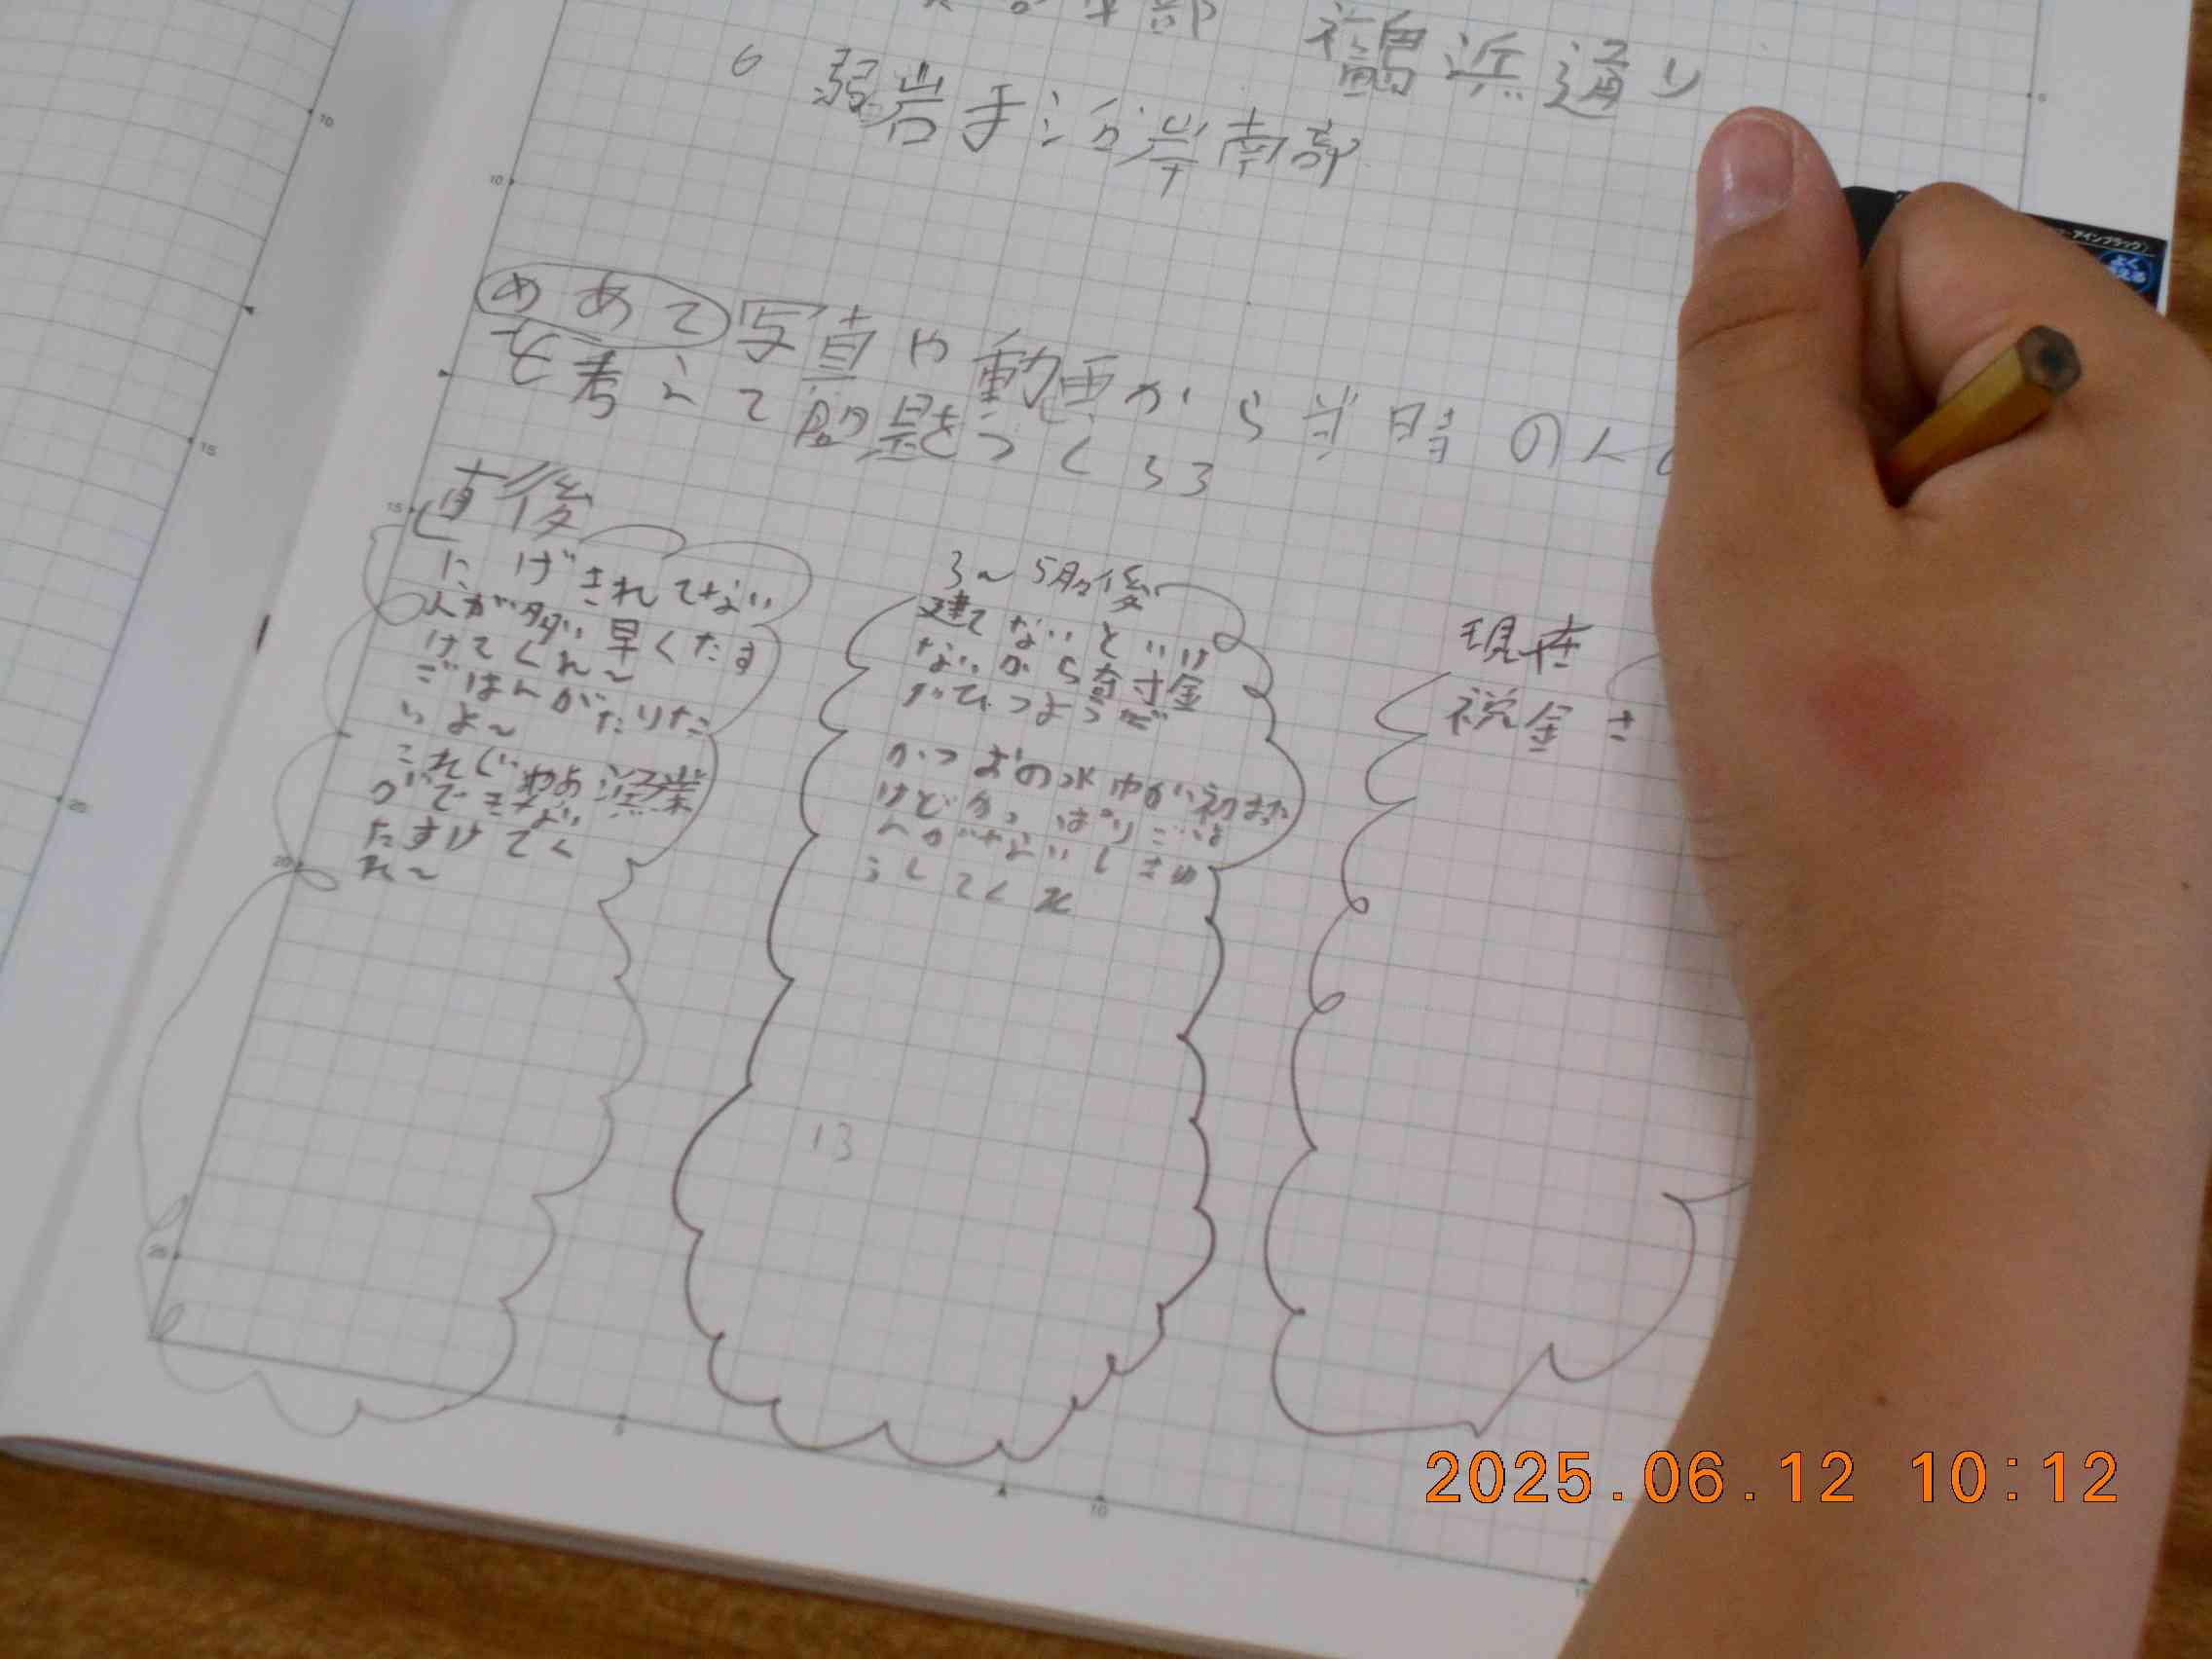 福島浜通り
6 弱岩手沿岸南部
めあて 写真や動画から当時の人
を考えて問題をつくろう
直後
にげきれてない
人が多い早くたす
けてくれ～
ごはんがたりた
いよ～
これじゃあ漁業
ができない
たすけてく
れ～
3～5月後
建てないといけ
ないから寄寸金
がひつようだ
かつおの水
けどかっぱりごは
んがないしきゅ
うしてくれ
13
現在
税金さ
アインブラック
10
15
20
10
15
20
25
5
10
15
2025.06.12 10:12